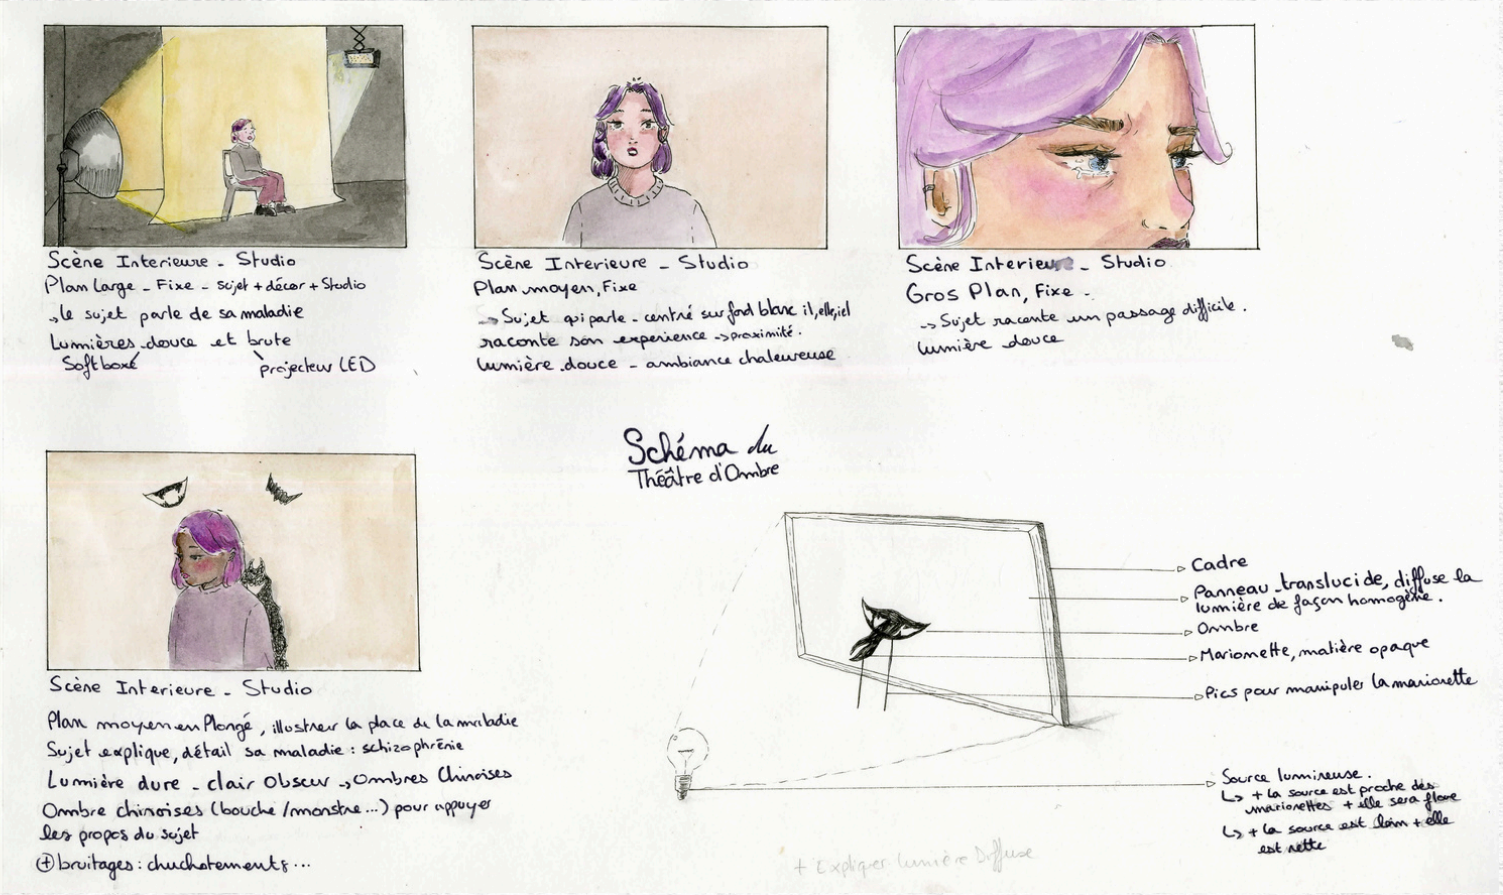 Scène Interieure - Studio
Plan Large - Fixe - sujet + décor + Studio
→ le sujet parle de sa maladie
Lumières douce et brute
Softboxé
projecteur LED
Scène Interieure - Studio
Plan moyen, Fixe
-> Sujet qui parle - centré sur fond blanc il, elle, iel
raconte son experience -> proximité.
Lumière douce - ambiance chaleureuse
Scène Interieure - Studio
Gros Plan, Fixe -
-> Sujet raconte un passage difficile.
Lumière douce
Scène Interieure - Studio
Plan moyen en Plongé, illustrer la place de la maladie
Sujet explique, détail sa maladie : schizophrénie
Lumière dure - clair Obscur -> Ombres Chinoises
Ombre chinoises (bouche / monstre...) pour appuyer
les propos du sujet
⊕ bruitages : chuchotements...
Schéma du
Théâtre d'Ombre
Cadre
Panneau translucide, diffuse la
lumière de façon homogène.
Ombre
Marionette, matière opaque
Pics pour manipuler la marionette
Source lumineuse.
↳ + la source est proche des
marionettes + elle sera floue
↳ + la source est loin + elle
est nette
+ Expliquer lumière Diffuse